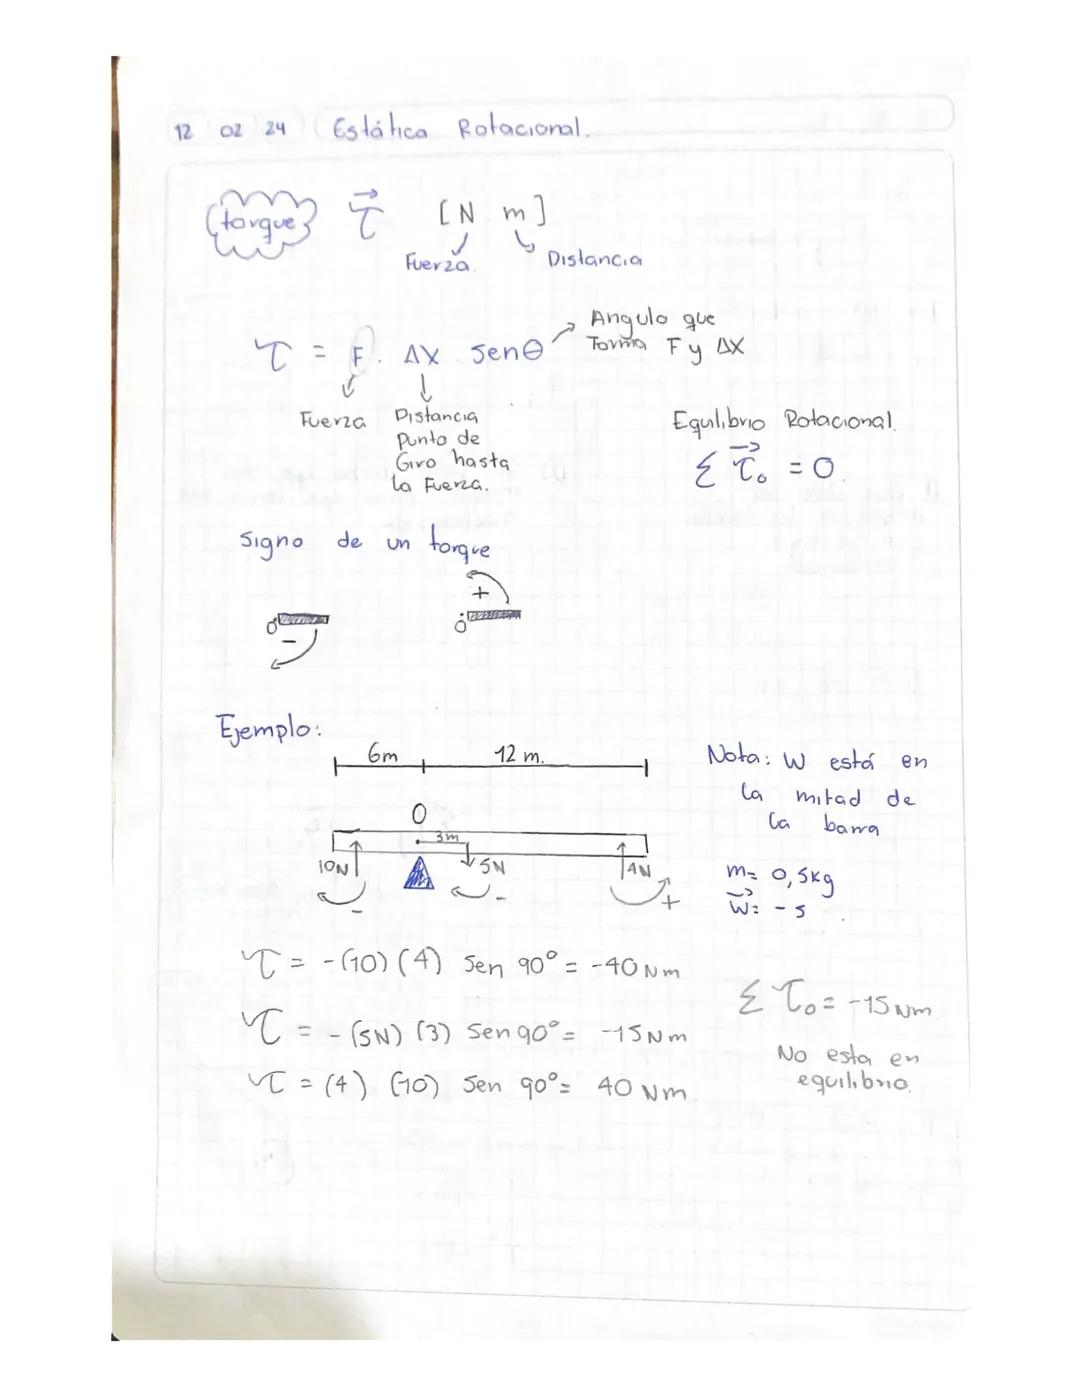 12 02 24 Estática Rotacional.
torque τ⃗ [N m]
Fuerza. Distancia
τ = F . ΔX . Senθ
Angulo que
Forma F y ΔX
Fuerza
Distancia
Punto de
Giro hasta
la Fuerza.
Equilibrio Rotacional.
Σ τ⃗₀ = 0.
Signo de un torque
O - O +
Ejemplo:
6m 12 m.
O
3m
10N 5N 4N
- - +
Nota: W está en
la mitad de
la barra
m= 0,5kg
W⃗= -5
τ = -(10)(4) Sen 90° = -40 Nm
τ = -(5N) (3) Sen 90° = -15 Nm
τ = (4) (10) Sen 90° = 40 Nm
Σ τ₀ = -15 Nm
No esta en
equilibrio.